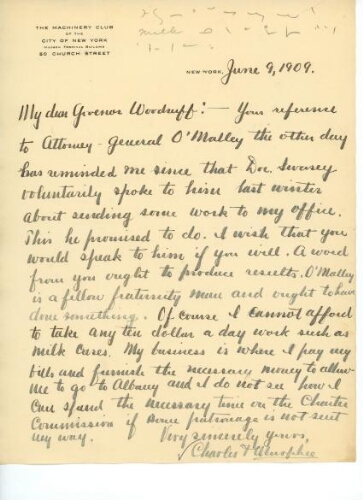 THE MACHINERY CLUB
OF THE
CITY OF NEW YORK
HUDSON TERMINAL BUILDING
50 CHURCH STREET
milk
NEW YORK, June 9, 1909.
My dear Govenor Woodruff:— Your reference
to Attorney-General O'Malley the other day
has reminded me since that Doc. Swasey
voluntarily spoke to him last winter
about sending some work to my office.
This he promised to do. I wish that you
would speak to him if you will. A word
from you ought to produce results. O'Malley
is a fellow fraternity man and ought to have
done something. Of course I cannot afford
to take any ten dollar a day work such as
Milk Cases. My business is where I pay my
bills and furnish the necessary money to allow
me to go to Albany and I do not see how I
can spend the necessary time on the Charter
Commission if some patronage is not sent
my way. Very sincerely yours,
Charles F